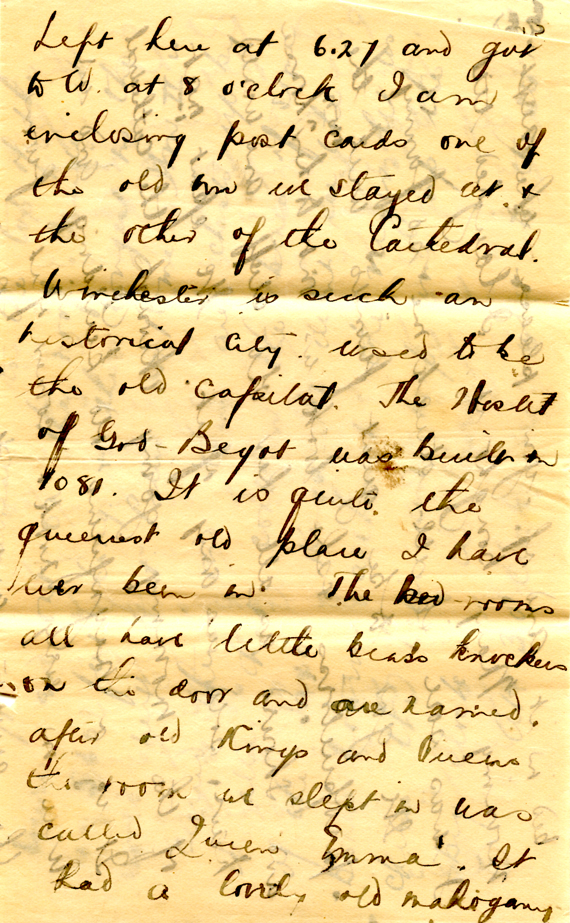 Left here at 6.27 and got
to W. at 8 o'clock I am
enclosing post cards one of
the old Inn we stayed at &
the other of the Cathedral.
Winchester is such an
historical city. used to be
the old capital. The Hostel
of God-Begot was built in
1081. It is quite the
queerest old place I have
ever been in. The bed-rooms
all have little brass knockers
on the door and are named.
after old Kings and Queens
the room we slept in was
called Queen Emma'. It
had a lovely old mahogany